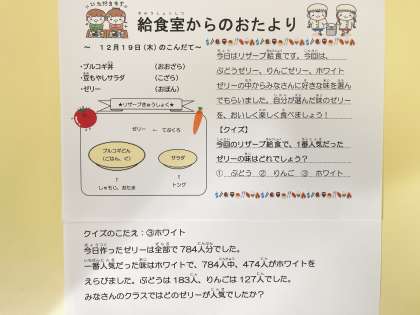 いただきます
給食室からのおたより
～ 12月19日(木)のこんだて～
・ブルコギ丼 (おおざら)
・豆もやしサラダ (こざら)
・ゼリー (おぼん)
★リザーブきゅうしょく★
ゼリー ← てぶくろ
ブルコギどん
(ごはん、ぐ)
サラダ
↑
しゃもじ、おたま
↑
トング
今日はリザーブ給食です。今回は、
ぶどうゼリー、りんごゼリー、ホワイト
ゼリーの中からみなさんに好きな味を選ん
でもらいました。自分が選んだ味のゼリー
を、おいしく楽しく食べましょう！
【クイズ】
今回のリザーブ給食で、1番人気だった
ゼリーの味はどれでしょう？
① ぶどう ② りんご ③ ホワイト
クイズのこたえ：③ホワイト
今日作ったゼリーは全部で784人分でした。
一番人気だった味はホワイトで、784人中、474人がホワイトを
えらびました。ぶどうは183人、りんごは127人でした。
みなさんのクラスではどのゼリーが人気でしたか？